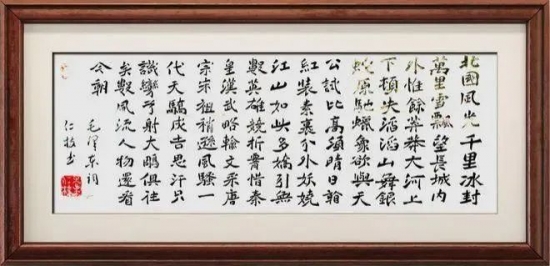 北國風光千里冰封
萬里雪飄望長城內
外惟餘莽莽大河上
下頓失滔滔山舞銀
蛇原馳蠟象欲與天
公試比高須晴日看
紅裝素裹分外妖嬈
江山如此多嬌引無
數英雄競折腰惜秦
皇漢武略輸文采唐
宗宋祖稍遜風騷一
代天驕成吉思汗只
識彎弓射大鵰俱往
矣數風流人物還看
今朝
毛澤東詞